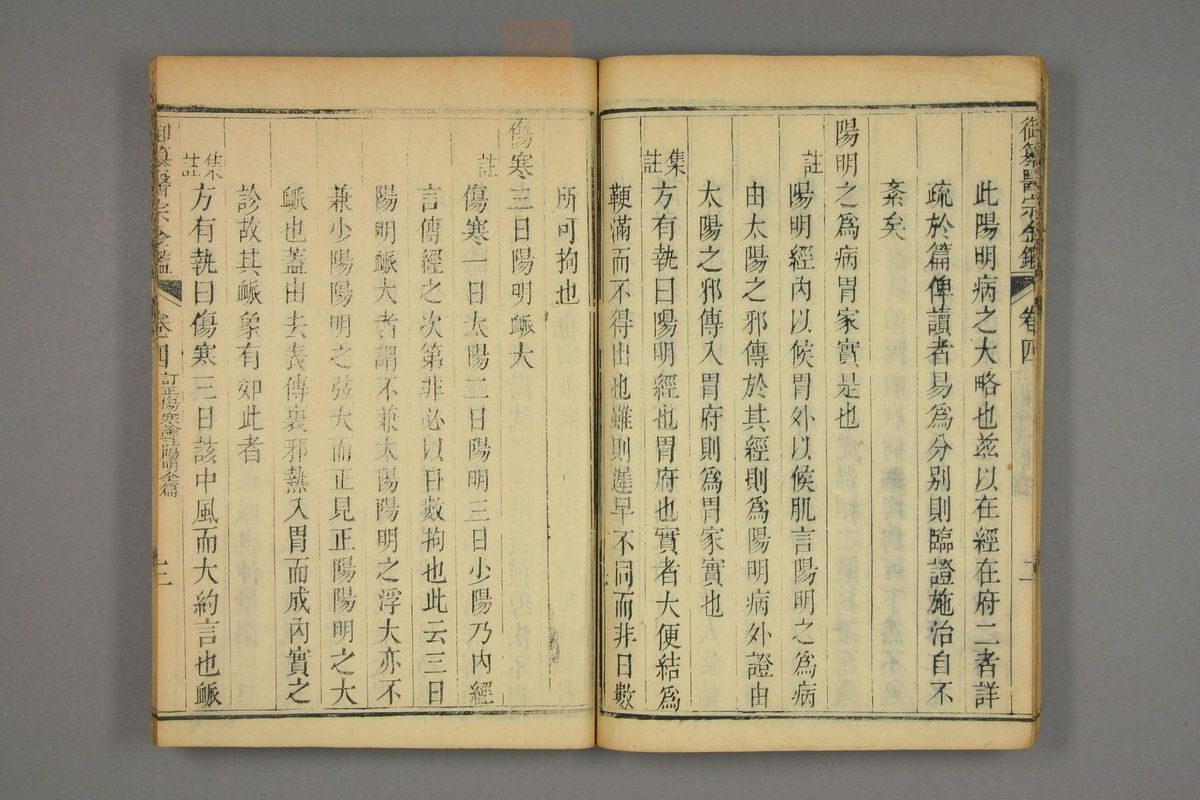 御纂醫宗金鑑 卷四
此陽明病之大略也兹以在經在府二者詳
疏於篇俾讀者易爲分别則臨證施治自不
紊矣
陽明之爲病胃家實是也
註 陽明經内以候胃外以候肌言陽明之爲病
由太陽之邪傳於其經則爲陽明病外證由
太陽之邪傳入胃府則爲胃家實也
集註 方有執曰陽明經也胃府也實者大便結爲
鞕滿而不得出也雖則遲早不同而非日數
所可拘也
傷寒三日陽明脈大
註 傷寒一日太陽二日陽明三日少陽乃内經
言傳經之次第非必以日數拘也此云三日
陽明脈大者謂不兼太陽陽明之浮大亦不
兼少陽陽明之弦大而正見正陽陽明之大
脈也蓋由去表傳裏邪熱入胃而成内實之
診故其脈象有如此者
集註 方有執曰傷寒三日該中風而大約言也脈
御纂醫宗金鑑 卷四 訂正傷寒論註陽明全篇 二